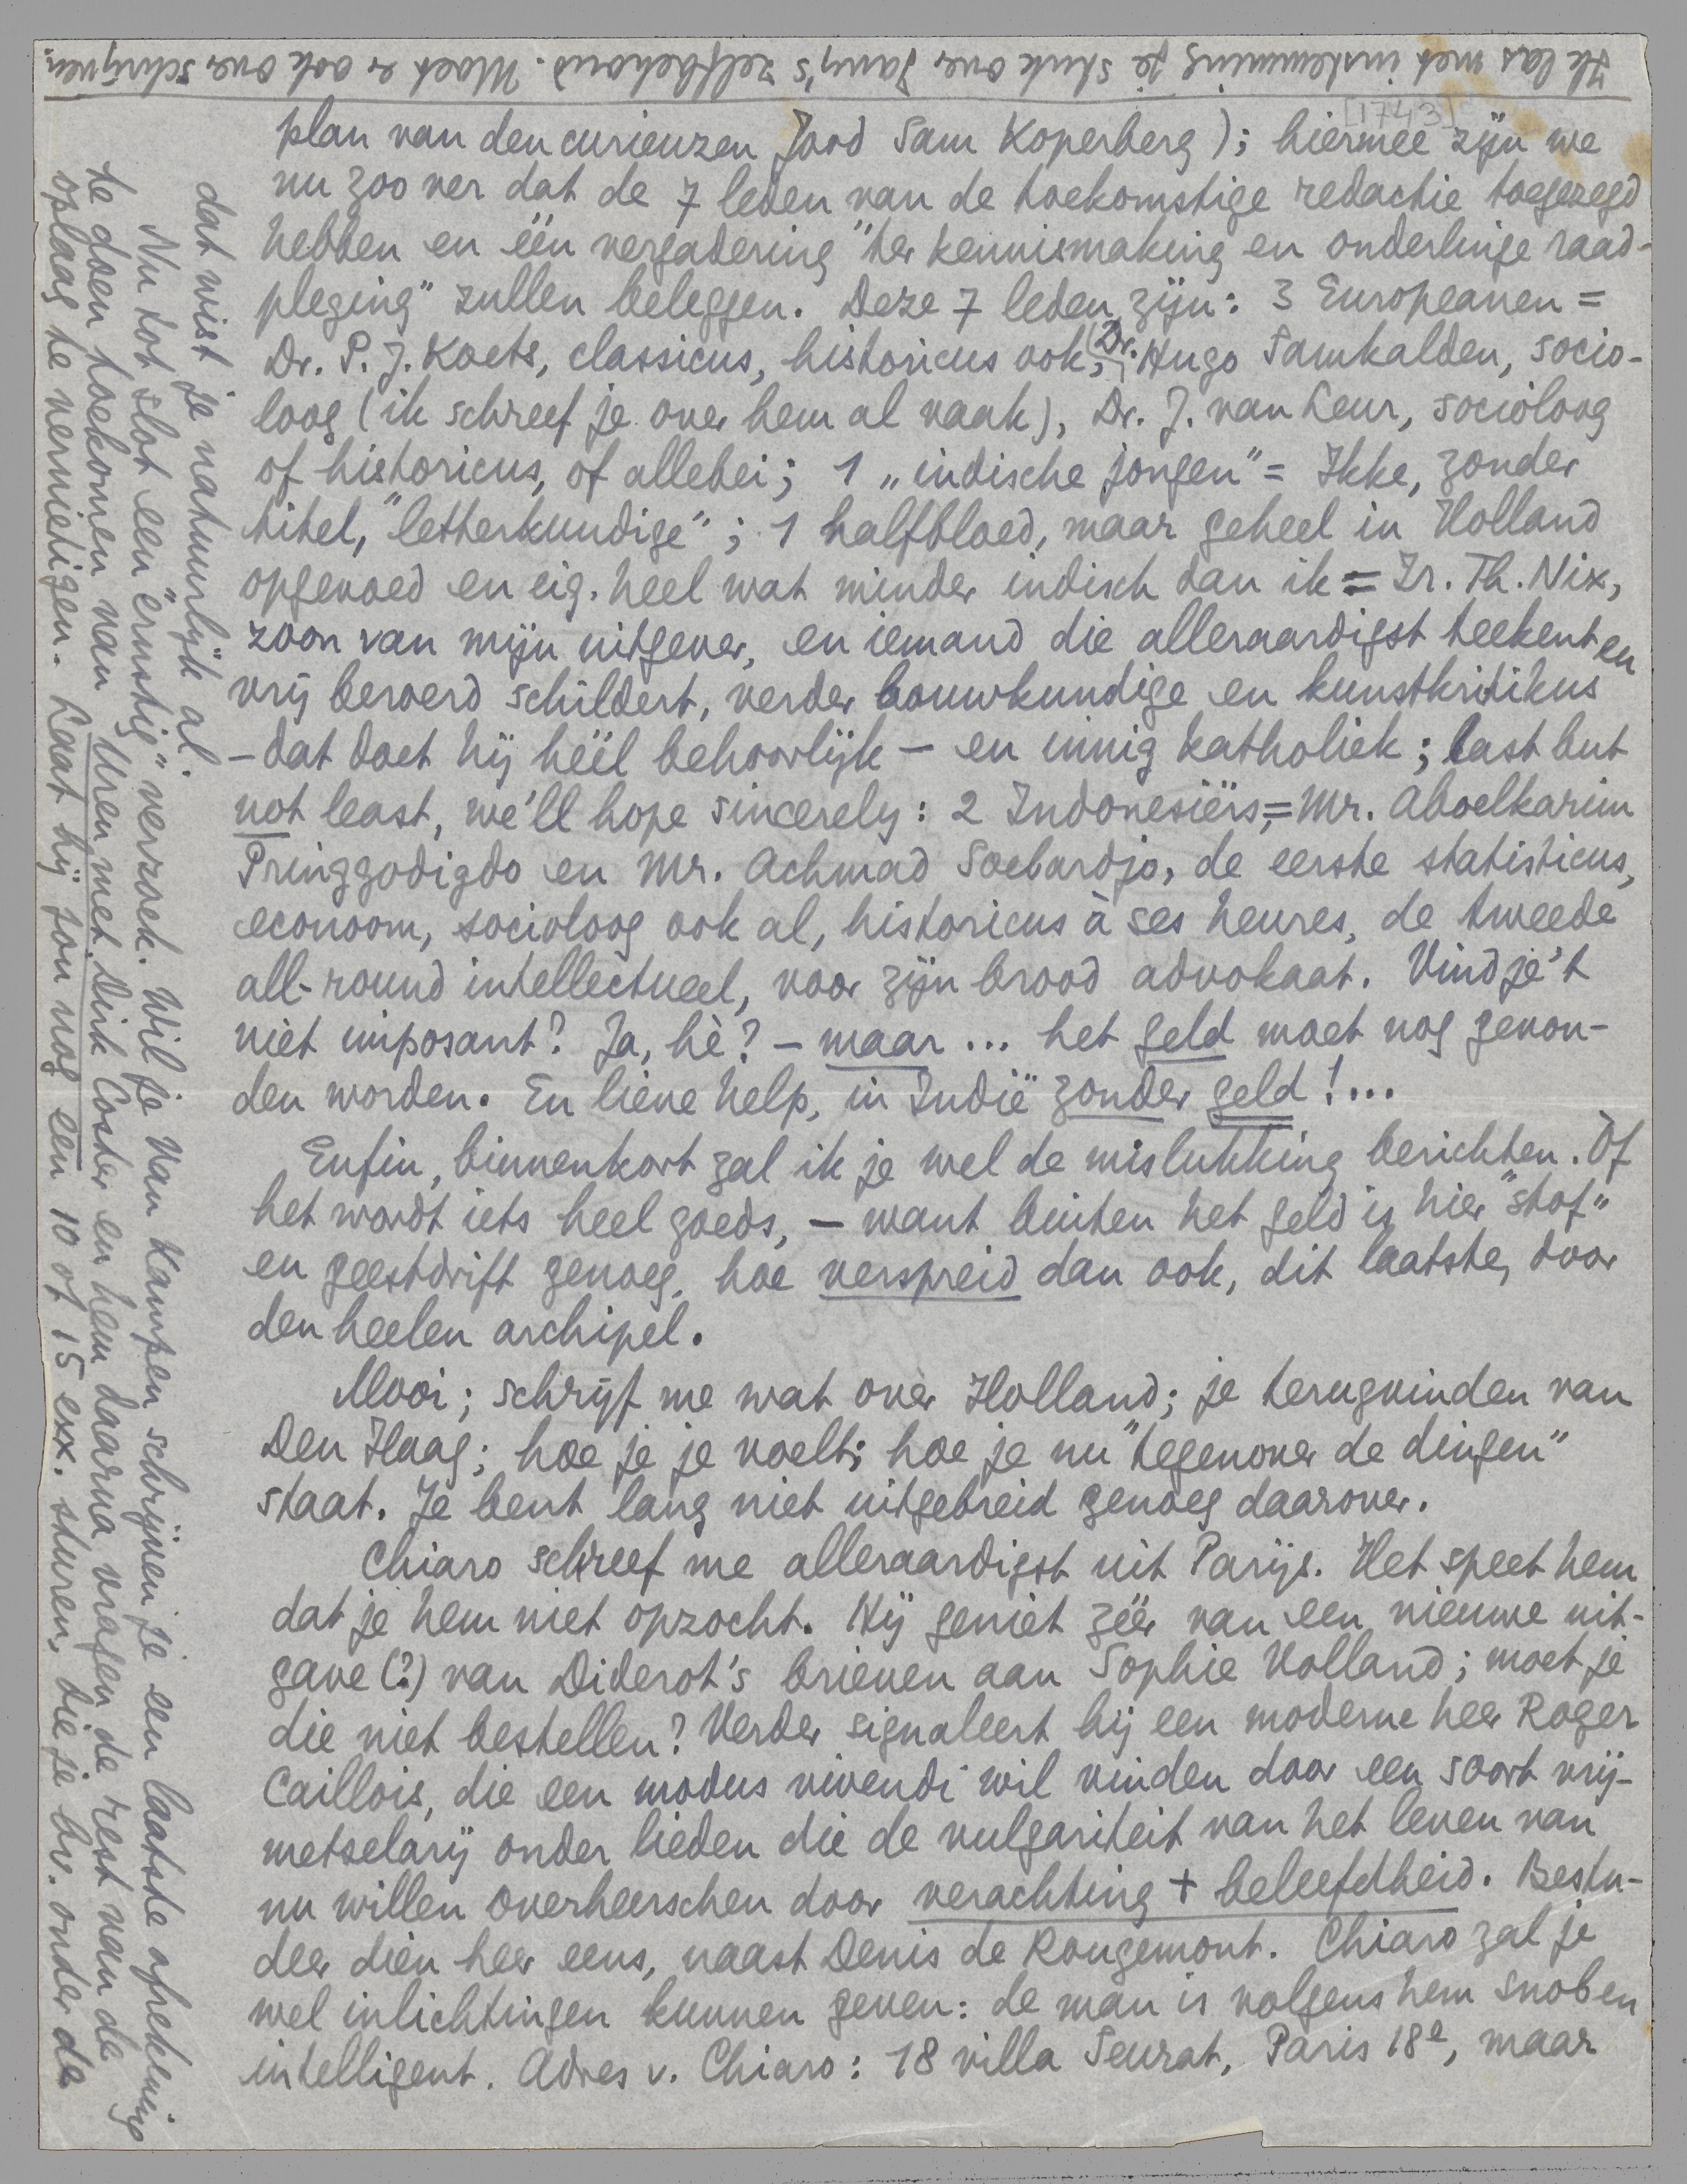 [1743]
plan van den curieuzen Jood Sam Koperberg); hiermee zijn we
nu zoo ver dat de 7 leden van de toekomstige redactie toegezegd
hebben en één vergadering "ter kennismaking en onderlinge raad-
pleging" zullen beleggen. Deze 7 leden zijn: 3 Europeanen =
Dr. P. J. Koets, classicus, historicus ook, Dr. Hugo Samkalden, socio-
loog (ik schreef je over hem al vaak), Dr. J. van Leur, socioloog
of historicus, of allebei; 1 „indische jongen" = Ikke, zonder
titel, "letterkundige"; 1 halfbloed, maar geheel in Holland
opgevoed en eig. heel wat minder indisch dan ik = Ir. Th. Nix,
zoon van mijn uitgever, en iemand die alleraardigst teekent en
vrij beroerd schildert, verder bouwkundige en kunstkritikus
– dat doet hij héél behoorlijk – en innig katholiek; last but
not least, we'll hope sincerely: 2 Indonesiërs, = Mr. Aboelkarim
Pringgodigdo en Mr. Achmad Soebardjo, de eerste statisticus,
econoom, socioloog ook al, historicus à ses heures, de tweede
all-round intellectueel, voor zijn brood advokaat. Vind je 't
niet imposant? Ja, hè? – maar... het geld moet nog gevon-
den worden. En lieve help, in Indië zonder geld!...
Enfin, binnenkort zal ik je wel de mislukking berichten. Òf
het wordt iets heel goeds, – want buiten het geld is hier "stof"
en geestdrift genoeg, hoe verspreid dan ook, dit laatste, door
den heelen archipel.
Mooi; schrijf me wat over Holland; je terugvinden van
Den Haag; hoe je je voelt; hoe je nu "tegenover de dingen"
staat. Je bent lang niet uitgebreid genoeg daarover.
Chiaro schreef me alleraardigst uit Parijs. Het speet hem
dat je hem niet opzocht. Hij geniet zéér van een nieuwe uit-
gave (?) van Diderot's brieven aan Sophie Volland; moet je
die niet bestellen? Verder signaleert hij een moderne heer Roger
Caillois, die een modus vivendi wil vinden door een soort vrij-
metselarij onder lieden die de vulgariteit van het leven van
nu willen overheerschen door verachting + beleefdheid. Bestu-
deer dien heer eens, naast Denis de Rougemont. Chiaro zal je
wel inlichtingen kunnen geven: de man is volgens hem snob en
intelligent. Adres v. Chiaro: 18 villa Seurat, Paris 18e, maar
dat wist je natuurlijk al.
Nu tot slot een "ernstig" verzoek. Wil je Van Kampen schrijven je een laatste afrekening
te doen toekomen van Uren met Dirk Coster en hem daarna vragen de rest van de
oplaag te vernietigen. Laat hij jou nog een 10 of 15 exx. sturen, die je bv. onder de
Ik las met instemming je stuk over Jany's zelfbehoud. Moet er ook over schrijven.